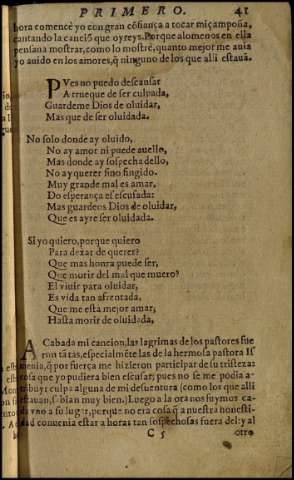 PRIMERO. 41
hora comencè yo con gran cõfiança a tocar mi çampoña,
cantando la canciõ que oyreys. Porque alomenos en ella
pensaua mostrar, como lo mostrè, quanto mejor me auia
yo auido en los amores, q̃ ninguno de los que alli estauã.
PVes no puedo descansar
A trueque de ser culpada,
Guardeme Dios de oluidar,
Mas que de ser oluidada.
No solo donde ay oluido,
No ay amor ni puede auello,
Mas donde ay sospecha dello,
No ay querer sino fingido.
Muy grande mal es amar,
Do esperança es escusada:
Mas guardeos Dios de oluidar,
Que es ayre ser oluidada.
Si yo quiero, porque quiero
Para dexar de querer?
Que mas honra puede ser,
Que morir del mal que muero?
El viuir para oluidar,
Es vida tan afrentada,
Que me esta mejor amar,
Hasta morir de oluidada.
ACabada mi cancion, las lagrimas de los pastores fue
ron tãtas, especialmẽte las de la hermosa pastora Is
menia, q̃ por fuerça me hizieron participar de su tristeza:
cosa que yo pudiera bien escusar, pues no se me podia a-
tribuyr culpa alguna de mi desuentura (como los que alli
estauan, sabian muy bien.) Luego a la ora nos fuymos ca-
da vno a su lugar, porque no era cosa q̃ a nuestra honesti-
dad conuenia estar a horas tan sospechosas fuera del: y al
C 5 otro